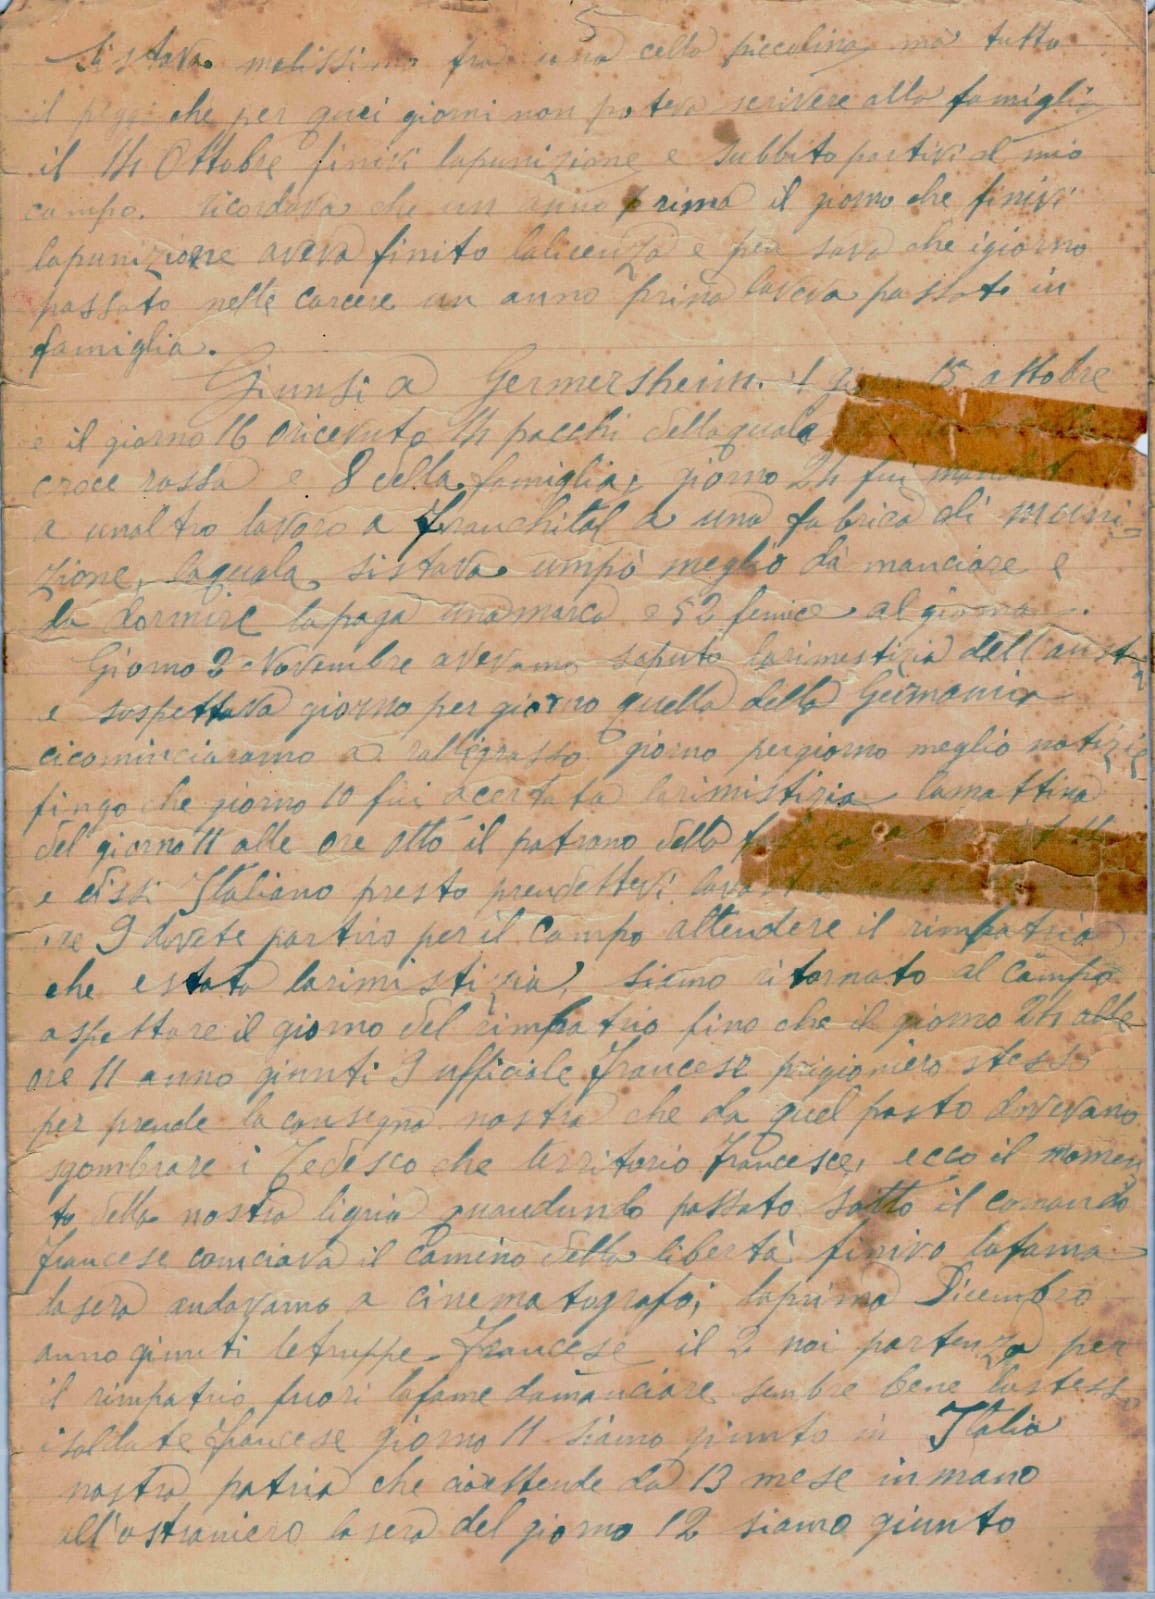 5
Si stava malissimo frà una cella piccolina ma tutto
il peggi che per quei giorni non poteva scrivere alla famiglia
il 14 Ottobre finivi lapunizione e subbito partivi al mio
campo. ricordava che un anno prima il giorno che finivi
lapunizione aveva finito lalicenza e pen sava che igiorno
passato nelle carcere un anno prima laveva passato in
famiglia.
Giunsi a Germersheim. 15 ottobre
e il giorno 16 oricevuto 14 pacchi dellaquale
croce rossa e 8 della famiglia, giorno 24 fui
a unaltro lavoro a Franchital a una fabrica di muni=
zione, laquala, sistava umpò meglio dà manciare e
da dormire lapaga unamarca e 52 fenice al giorno.
Giorno 2 Novembre avevamo saputo larimestizia dell'aust
e sospettava giorno per giorno quella della Germania
cicominciaramo a rallegrasso giorno pergiorno meglio notizie
fingo che giorno 10 fui acertata larimistizia lamattina
del giorno 11 alle ore otto il patrono della
e dissi Italiano presto prendettevi
re 9 dovete partiro per il campo attendere il rimpatrio
che estata larimistizia, siamo ritornato al campo
aspettare il giorno del rimpatrio fino che il giorno 24 alle
ore 11 anno giunti 9 ufficiale francese prigioniero stesso
per prende la consegna nostra che da quel posto dovevano
sgombrare i Tedesco che territorio francesce, ecco il momen
to della nostra ligria quandundo passato sotto il comando
francese comciava il camino della libertà finivo lafama
lasera andavamo a cinematografo; laprima Dicembro
anno giunti letruppe francese il 2 noi partenza per
il rimpatrio fuori lafame damanciare sembre bene lostesso
isoldate francese giorno 11 siamo giunto in Italia
nostra patria che cioattende da 13 mese in mano
all'ostraniero lasera del giorno 12 siamo giunto